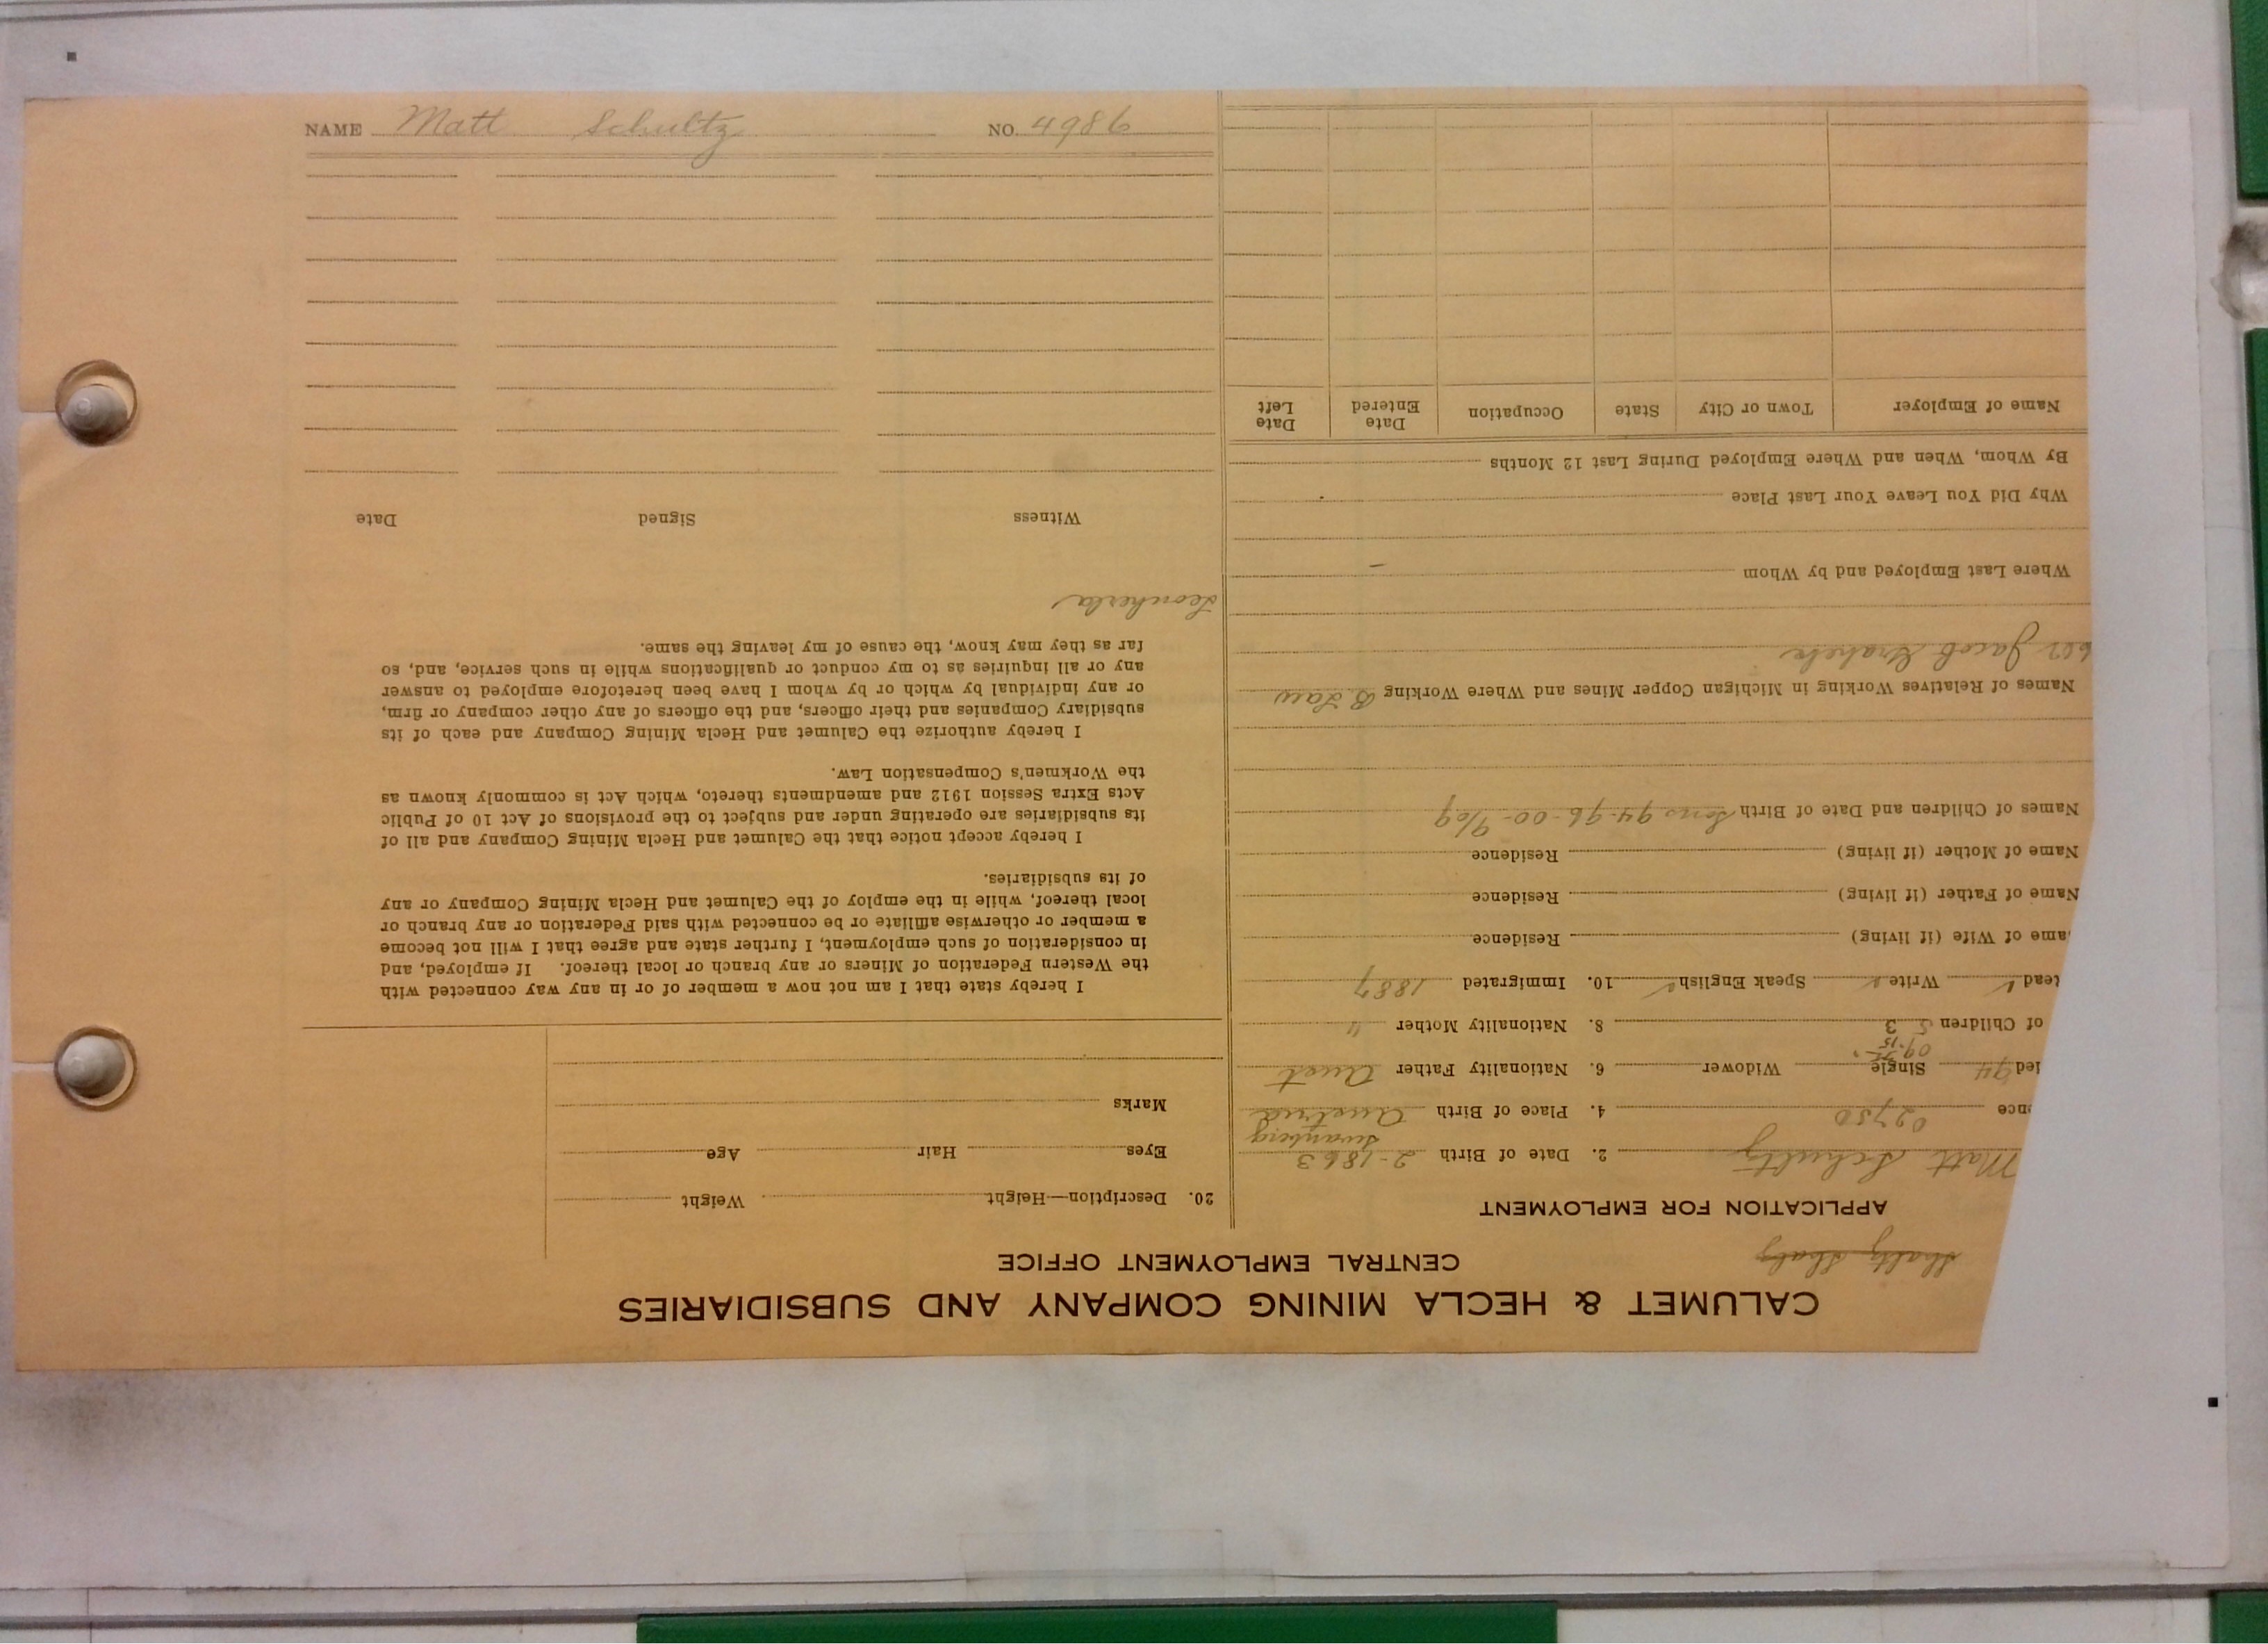 NAME Matt Schultz NO. 4986
CALUMET & HECLA MINING COMPANY AND SUBSIDIARIES
CENTRAL EMPLOYMENT OFFICE
APPLICATION FOR EMPLOYMENT
Matt Schultz 2. Date of Birth 2-1863
ence 02750 4. Place of Birth Austria
ied 94 Single Widower 6. Nationality Father Aust
09-15
of Children 5 3 8. Nationality Mother "
tead Write Speak English 10. Immigrated 1887
ame of Wife (if living) Residence
Name of Father (if living) Residence
Name of Mother (if living) Residence
Names of Children and Date of Birth Sons 94-96-00-9/09
Names of Relatives Working in Michigan Copper Mines and Where Working B Law
Jacob
Where Last Employed and by Whom -
Why Did You Leave Your Last Place
By Whom, When and Where Employed During Last 12 Months
Name of Employer Town or City State Occupation Date Entered Date Left
20. Description—Height Weight
Eyes Hair Age
Marks
I hereby state that I am not now a member of or in any way connected with
the Western Federation of Miners or any branch or local thereof. If employed, and
in consideration of such employment, I further state and agree that I will not become
a member or otherwise affiliate or be connected with said Federation or any branch or
local thereof, while in the employ of the Calumet and Hecla Mining Company or any
of its subsidiaries.
I hereby accept notice that the Calumet and Hecla Mining Company and all of
its subsidiaries are operating under and subject to the provisions of Act 10 of Public
Acts Extra Session 1912 and amendments thereto, which Act is commonly known as
the Workmen's Compensation Law.
I hereby authorize the Calumet and Hecla Mining Company and each of its
subsidiary Companies and their officers, and the officers of any other company or firm,
or any individual by which or by whom I have been heretofore employed to answer
any or all inquiries as to my conduct or qualifications while in such service, and, so
far as they may know, the cause of my leaving the same.
Witness Signed Date